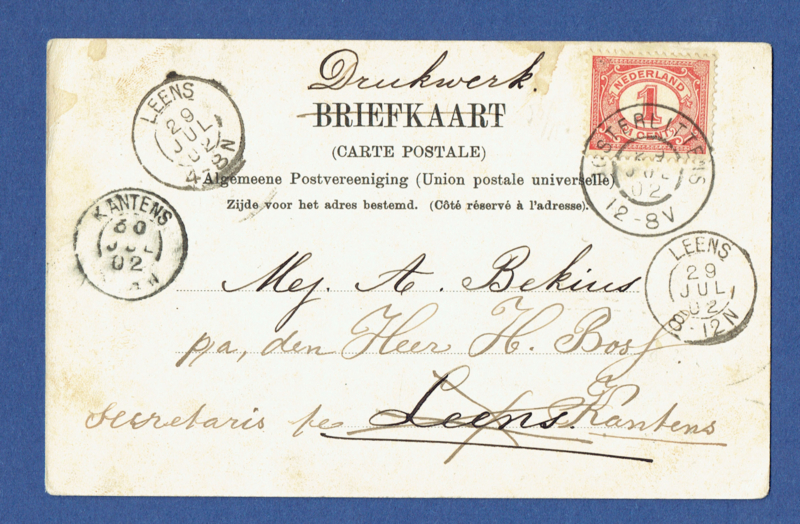 Drukwerk.
NEDERLAND
1
CENT
BRIEFKAART
(CARTE POSTALE)
Algemeene Postvereeniging (Union postale universelle)
Zijde voor het adres bestemd. (Côté réservé à l'adresse).
LEENS
29
JUL
02
4-8N
OOSTERLITTENS
29
JUL
02
12-8V
KANTENS
30
JUL
02
LEENS
29
JUL
02
8-12N
Mej. A. Bekius
pa, den Heer H. Bos
secretaris te Leens. Kantens